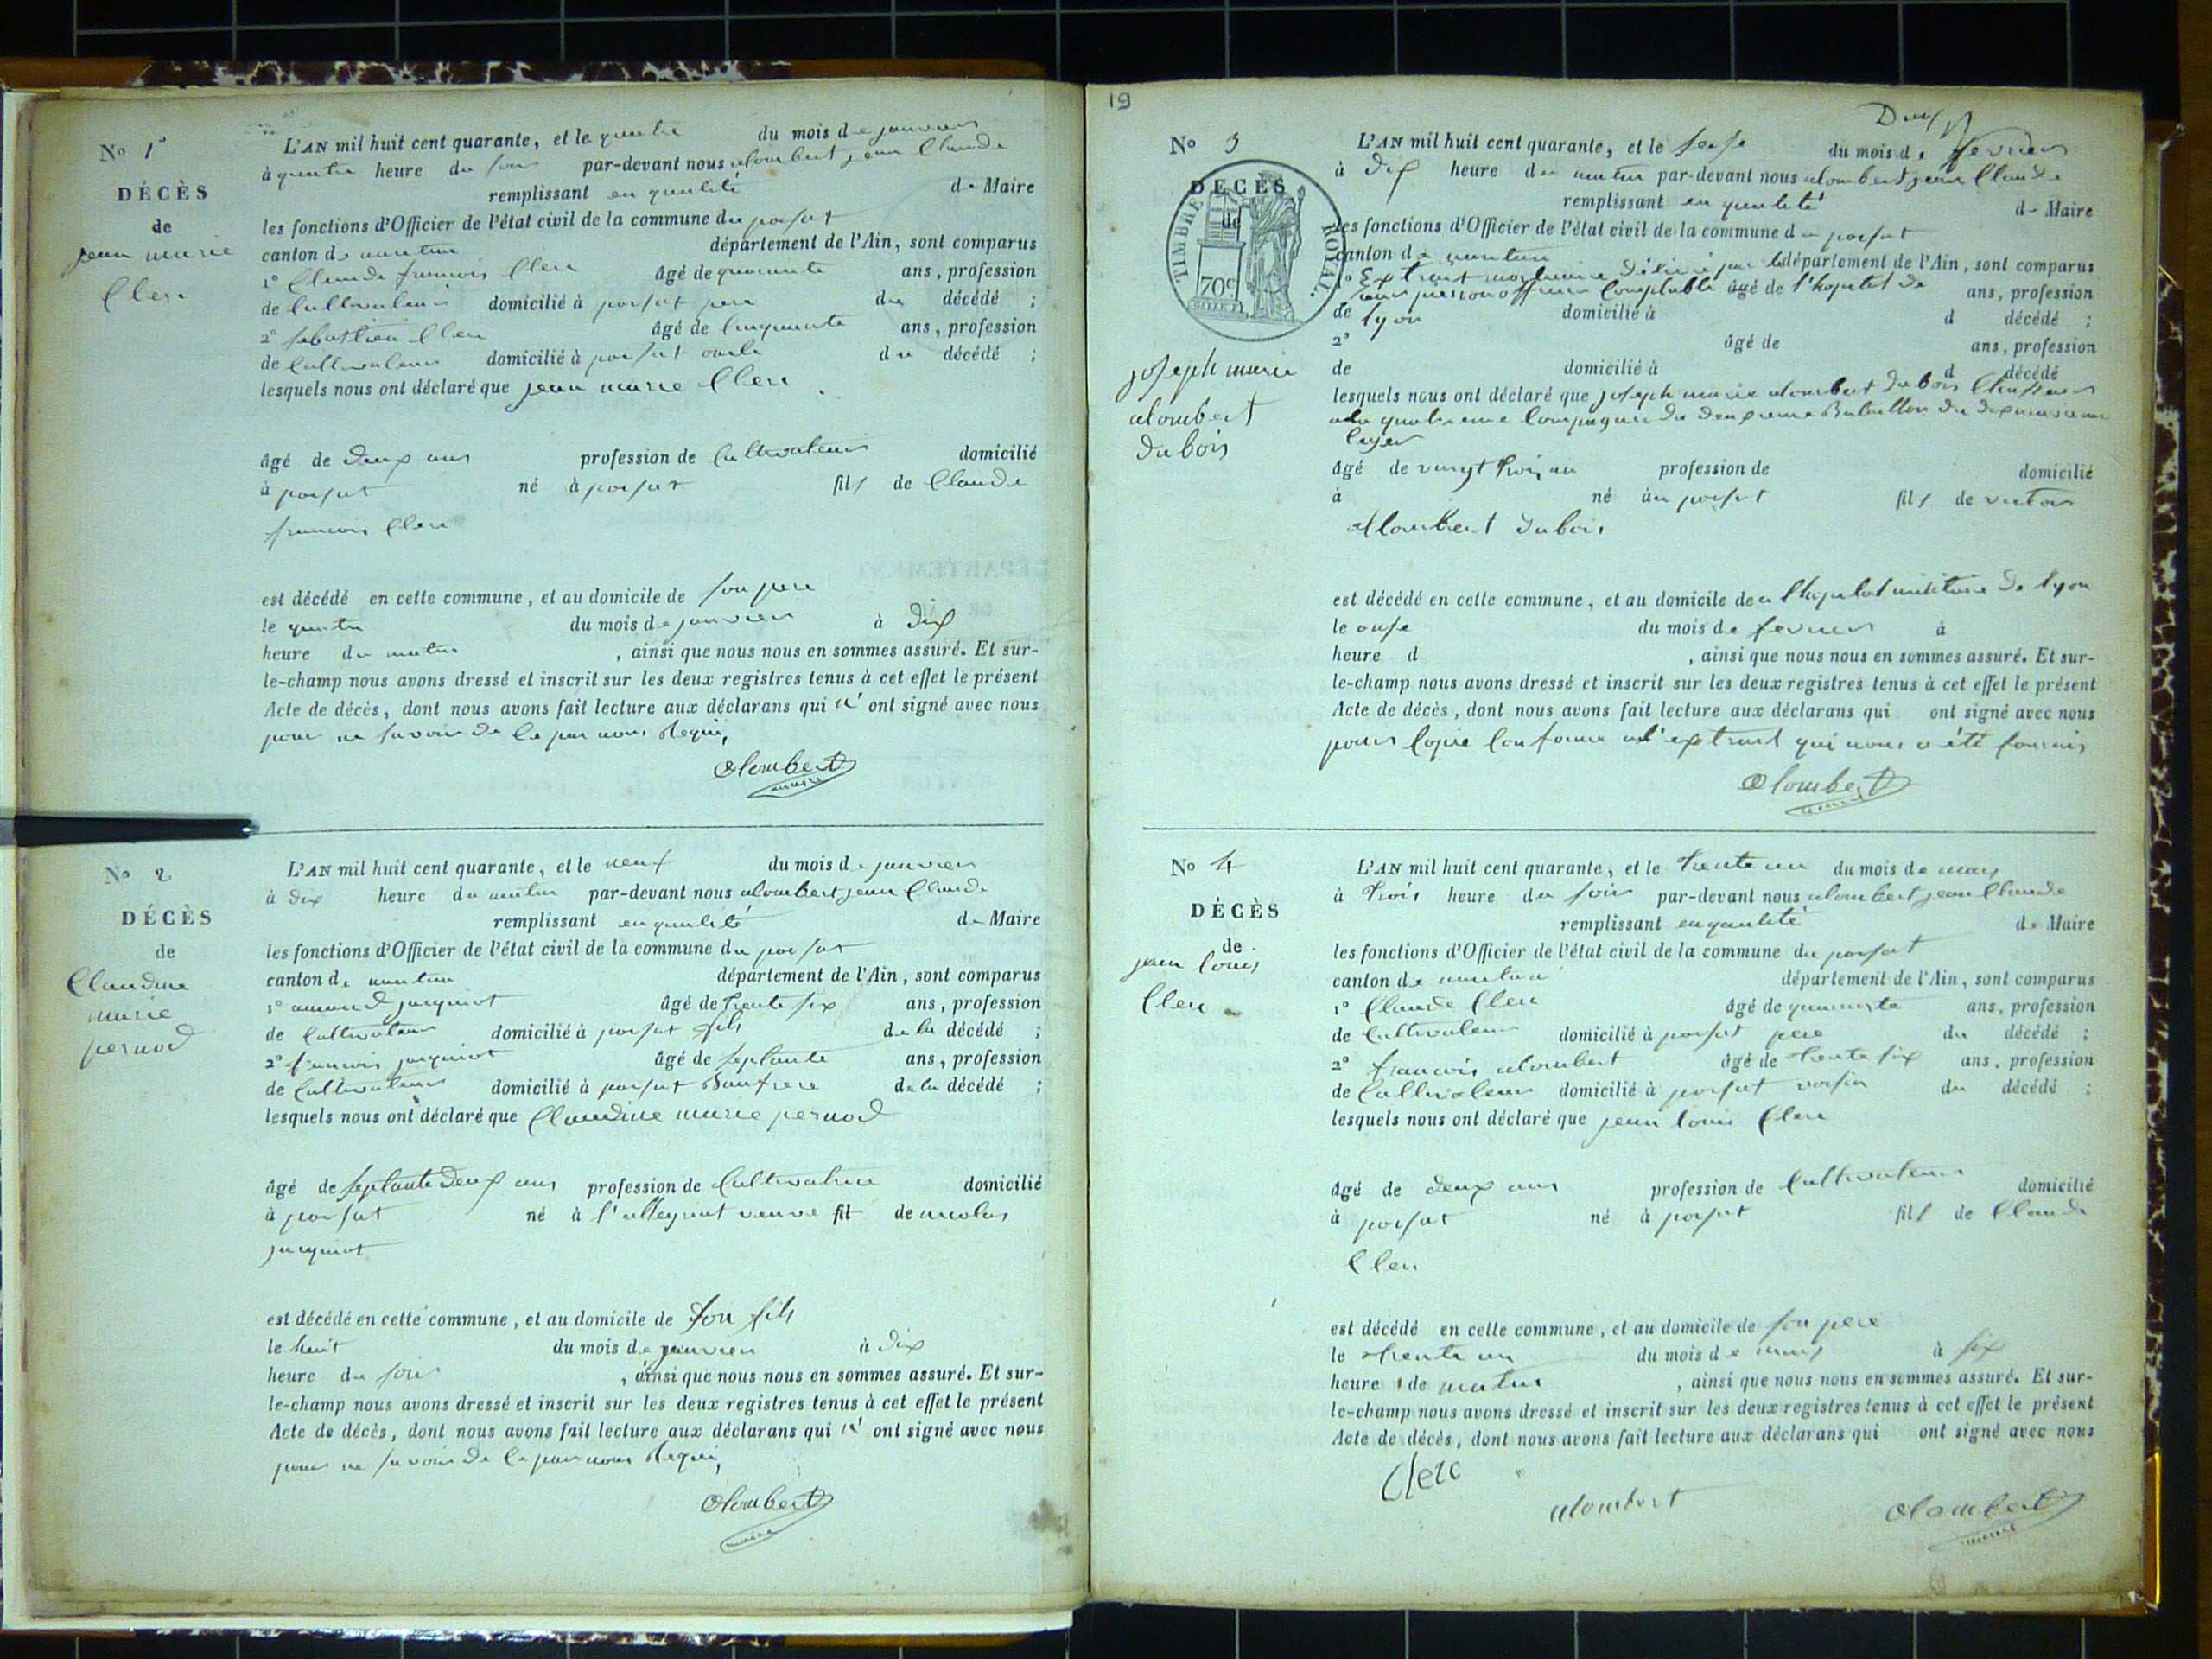 No 1er
DÉCÈS
de
jean marie
Clerc
L'AN mil huit cent quarante, et le quatre du mois de janvier
à quatre heure du soir par-devant nous alombert jean Claude
remplissant en qualité de Maire
les fonctions d'Officier de l'état civil de la commune du poisat
canton de nantua département de l'Ain, sont comparus
1º Claude francois Clerc âgé de quarante ans, profession
de Cultivateur domicilié à poisat pere du décédé ;
2º sebastien Clerc âgé de cinquante ans, profession
de Cultivateur domicilié à poisat oncle du décédé ;
lesquels nous ont déclaré que jean marie Clerc
âgé de deux ans profession de Cultivateur domicilié
à poisat né à poisat fils de Claude
francois Clerc
est décédé en cette commune, et au domicile de son pere
le quatre du mois de janvier à dix
heure du matin , ainsi que nous nous en sommes assuré. Et sur-
le-champ nous avons dressé et inscrit sur les deux registres tenus à cet effet le présent
Acte de décès, dont nous avons fait lecture aux déclarans qui n' ont signé avec nous
pour ne savoir de ce par nous Requis,
alombert
maire
No 2
DÉCÈS
de
Claudine
marie
pernod
L'AN mil huit cent quarante, et le neuf du mois de janvier
à dix heure du matin par-devant nous alombert jean Claude
remplissant en qualité de Maire
les fonctions d'Officier de l'état civil de la commune du poisat
canton de nantua département de l'Ain, sont comparus
1º amand jacquiot âgé de trente six ans, profession
de Cultivateur domicilié à poisat fils de la décédé ;
2º francois jacquiot âgé de septante ans, profession
de Cultivateur domicilié à poisat Beaufrere de la décédé ;
lesquels nous ont déclaré que Claudine marie pernod
âgé de septante deux ans profession de Cultivatrice domicilié
à poisat né à l'alleyriat veuve fil de nicolas
jacquiot
est décédé en cette commune, et au domicile de son fils
le huit du mois de janvier à dix
heure du soir , ainsi que nous nous en sommes assuré. Et sur-
le-champ nous avons dressé et inscrit sur les deux registres tenus à cet effet le présent
Acte de décès, dont nous avons fait lecture aux déclarans qui n' ont signé avec nous
pour ne savoir de ce par nous Requis,
alombert
maire
19
No 3
DÉCÈS
de
TIMBRE ROYAL.
70c
joseph marie
alombert
dubois
L'AN mil huit cent quarante, et le seize du mois de fevrier
à dix heure du matin par-devant nous alombert jean Claude
remplissant en qualité de Maire
les fonctions d'Officier de l'état civil de la commune du poisat
canton de nantua département de l'Ain, sont comparus
1º Extrait mortuaire délivré par le
officier Comptable âgé de l'hopital de ans, profession
de lyon domicilié à d décédé ;
2º âgé de ans, profession
de domicilié à d décédé
lesquels nous ont déclaré que joseph marie alombert dubois Chasseur
a la quatrieme Compagnie du deuxieme Bataillon du dixneuvieme
leger
âgé de vingt trois an profession de domicilié
à né àu poisat fils de victor
alombert dubois
est décédé en cette commune, et au domicile de a l'hopital militaire de lyon
le onze du mois de fevrier à
heure d , ainsi que nous nous en sommes assuré. Et sur-
le-champ nous avons dressé et inscrit sur les deux registres tenus à cet effet le présent
Acte de décès, dont nous avons fait lecture aux déclarans qui ont signé avec nous
pour Copie Conforme a l'extrait qui nous a été fournis
alombert
maire
No 4
DÉCÈS
de
jean louis
Clerc
L'AN mil huit cent quarante, et le trente un du mois de mars
à trois heure du soir par-devant nous alombert jean Claude
remplissant en qualité de Maire
les fonctions d'Officier de l'état civil de la commune du poisat
canton de nantua département de l'Ain, sont comparus
1º Claude Clerc âgé de quarante ans, profession
de Cultivateur domicilié à poisat pere du décédé ;
2º francois alombert âgé de trente six ans, profession
de Cultivateur domicilié à poisat voisin du décédé ;
lesquels nous ont déclaré que jean louis Clerc
âgé de deux ans profession de Cultivateur domicilié
à poisat né à poisat fils de Claude
Clerc
est décédé en cette commune, et au domicile de son pere
le trente un du mois de mars à six
heure de matin , ainsi que nous nous en sommes assuré. Et sur-
le-champ nous avons dressé et inscrit sur les deux registres tenus à cet effet le présent
Acte de décès, dont nous avons fait lecture aux déclarans qui ont signé avec nous
Clerc
alombert
alombert
maire